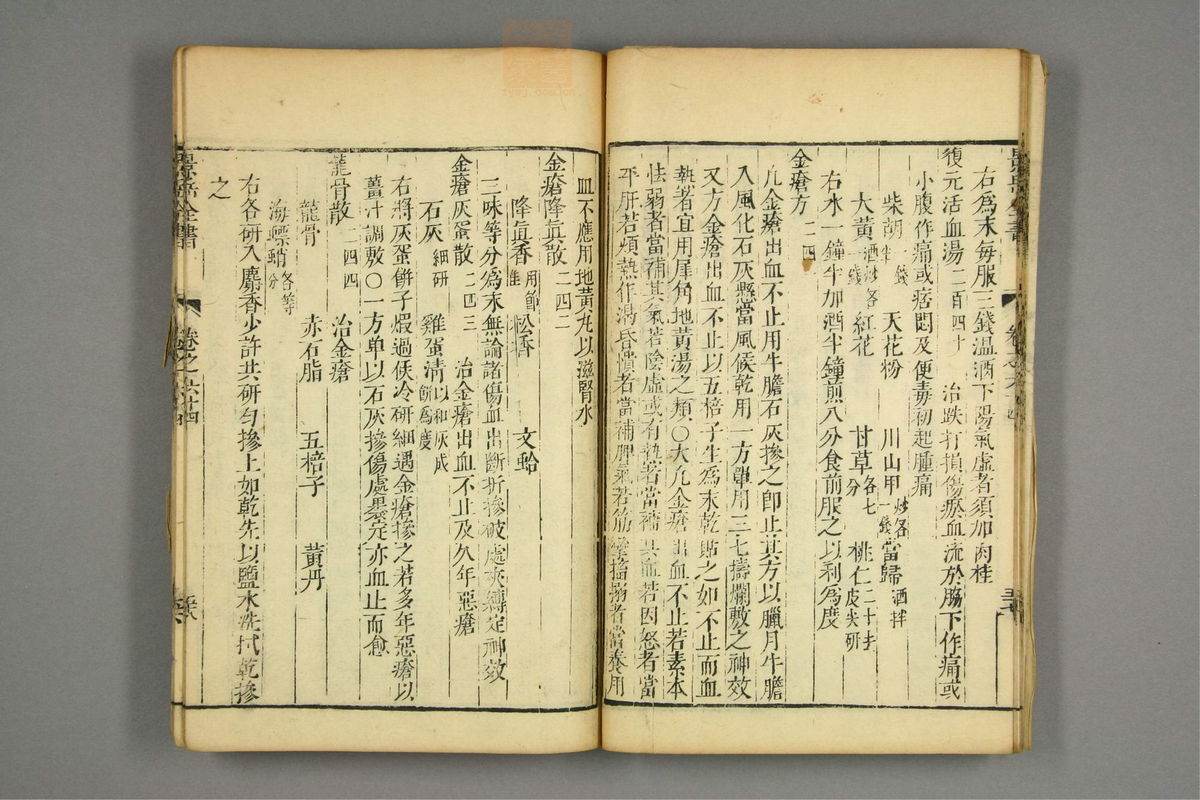 右爲末每服三錢温酒下陽氣虛者須加肉桂
復元活血湯二百四十 治跌打損傷瘀血流於脇下作痛或
小腹作痛或痞悶及便毒初起腫痛
柴胡 天花粉 川山甲炒各一錢 當歸酒拌
大黃酒炒各一錢 紅花 甘草各七分 桃仁二十
右水一鐘半加酒半鐘煎八分食前服之以利為度
金瘡方二四一
凡金瘡出血不止用牛膽石灰摻之卽止其方以臘月牛膽
入風化石灰懸當風候乾用一方單用三七擣爛敷之神效
又方金瘡出血不止以五棓子生爲末乾貼之如不止而血
熱者宜用犀角地黃湯之類○大凡金瘡出血不止若素本
怯弱者當補其氣若陰虛或有熱者當補其血若因怒者當
平肝若煩熱作渴昏憒者當補脾氣若筋攣搐搦者當養
血不應用地黃丸以滋腎水
金瘡降眞散二四二
降眞香用節佳 松香 文蛤
三味等分爲末無論諸傷血出斷折摻破處夾縛定神效
金瘡灰蛋散二四三 治金瘡出血不止及久年惡瘡
石灰細研 雞蛋清以和灰成餅為度
右將灰蛋餅子煆過候冷研細遇金瘡摻之若多年惡瘡以
薑汁調敷○一方单以石灰摻傷處裹定亦血止而愈
龍骨散二四四 治金瘡
龍骨 赤石脂 五棓子 黃丹
海螵蛸各等分
右各研入麝香少許共研勻摻上如乾先以鹽水洗拭乾摻
之
景岳全書 卷之六十四